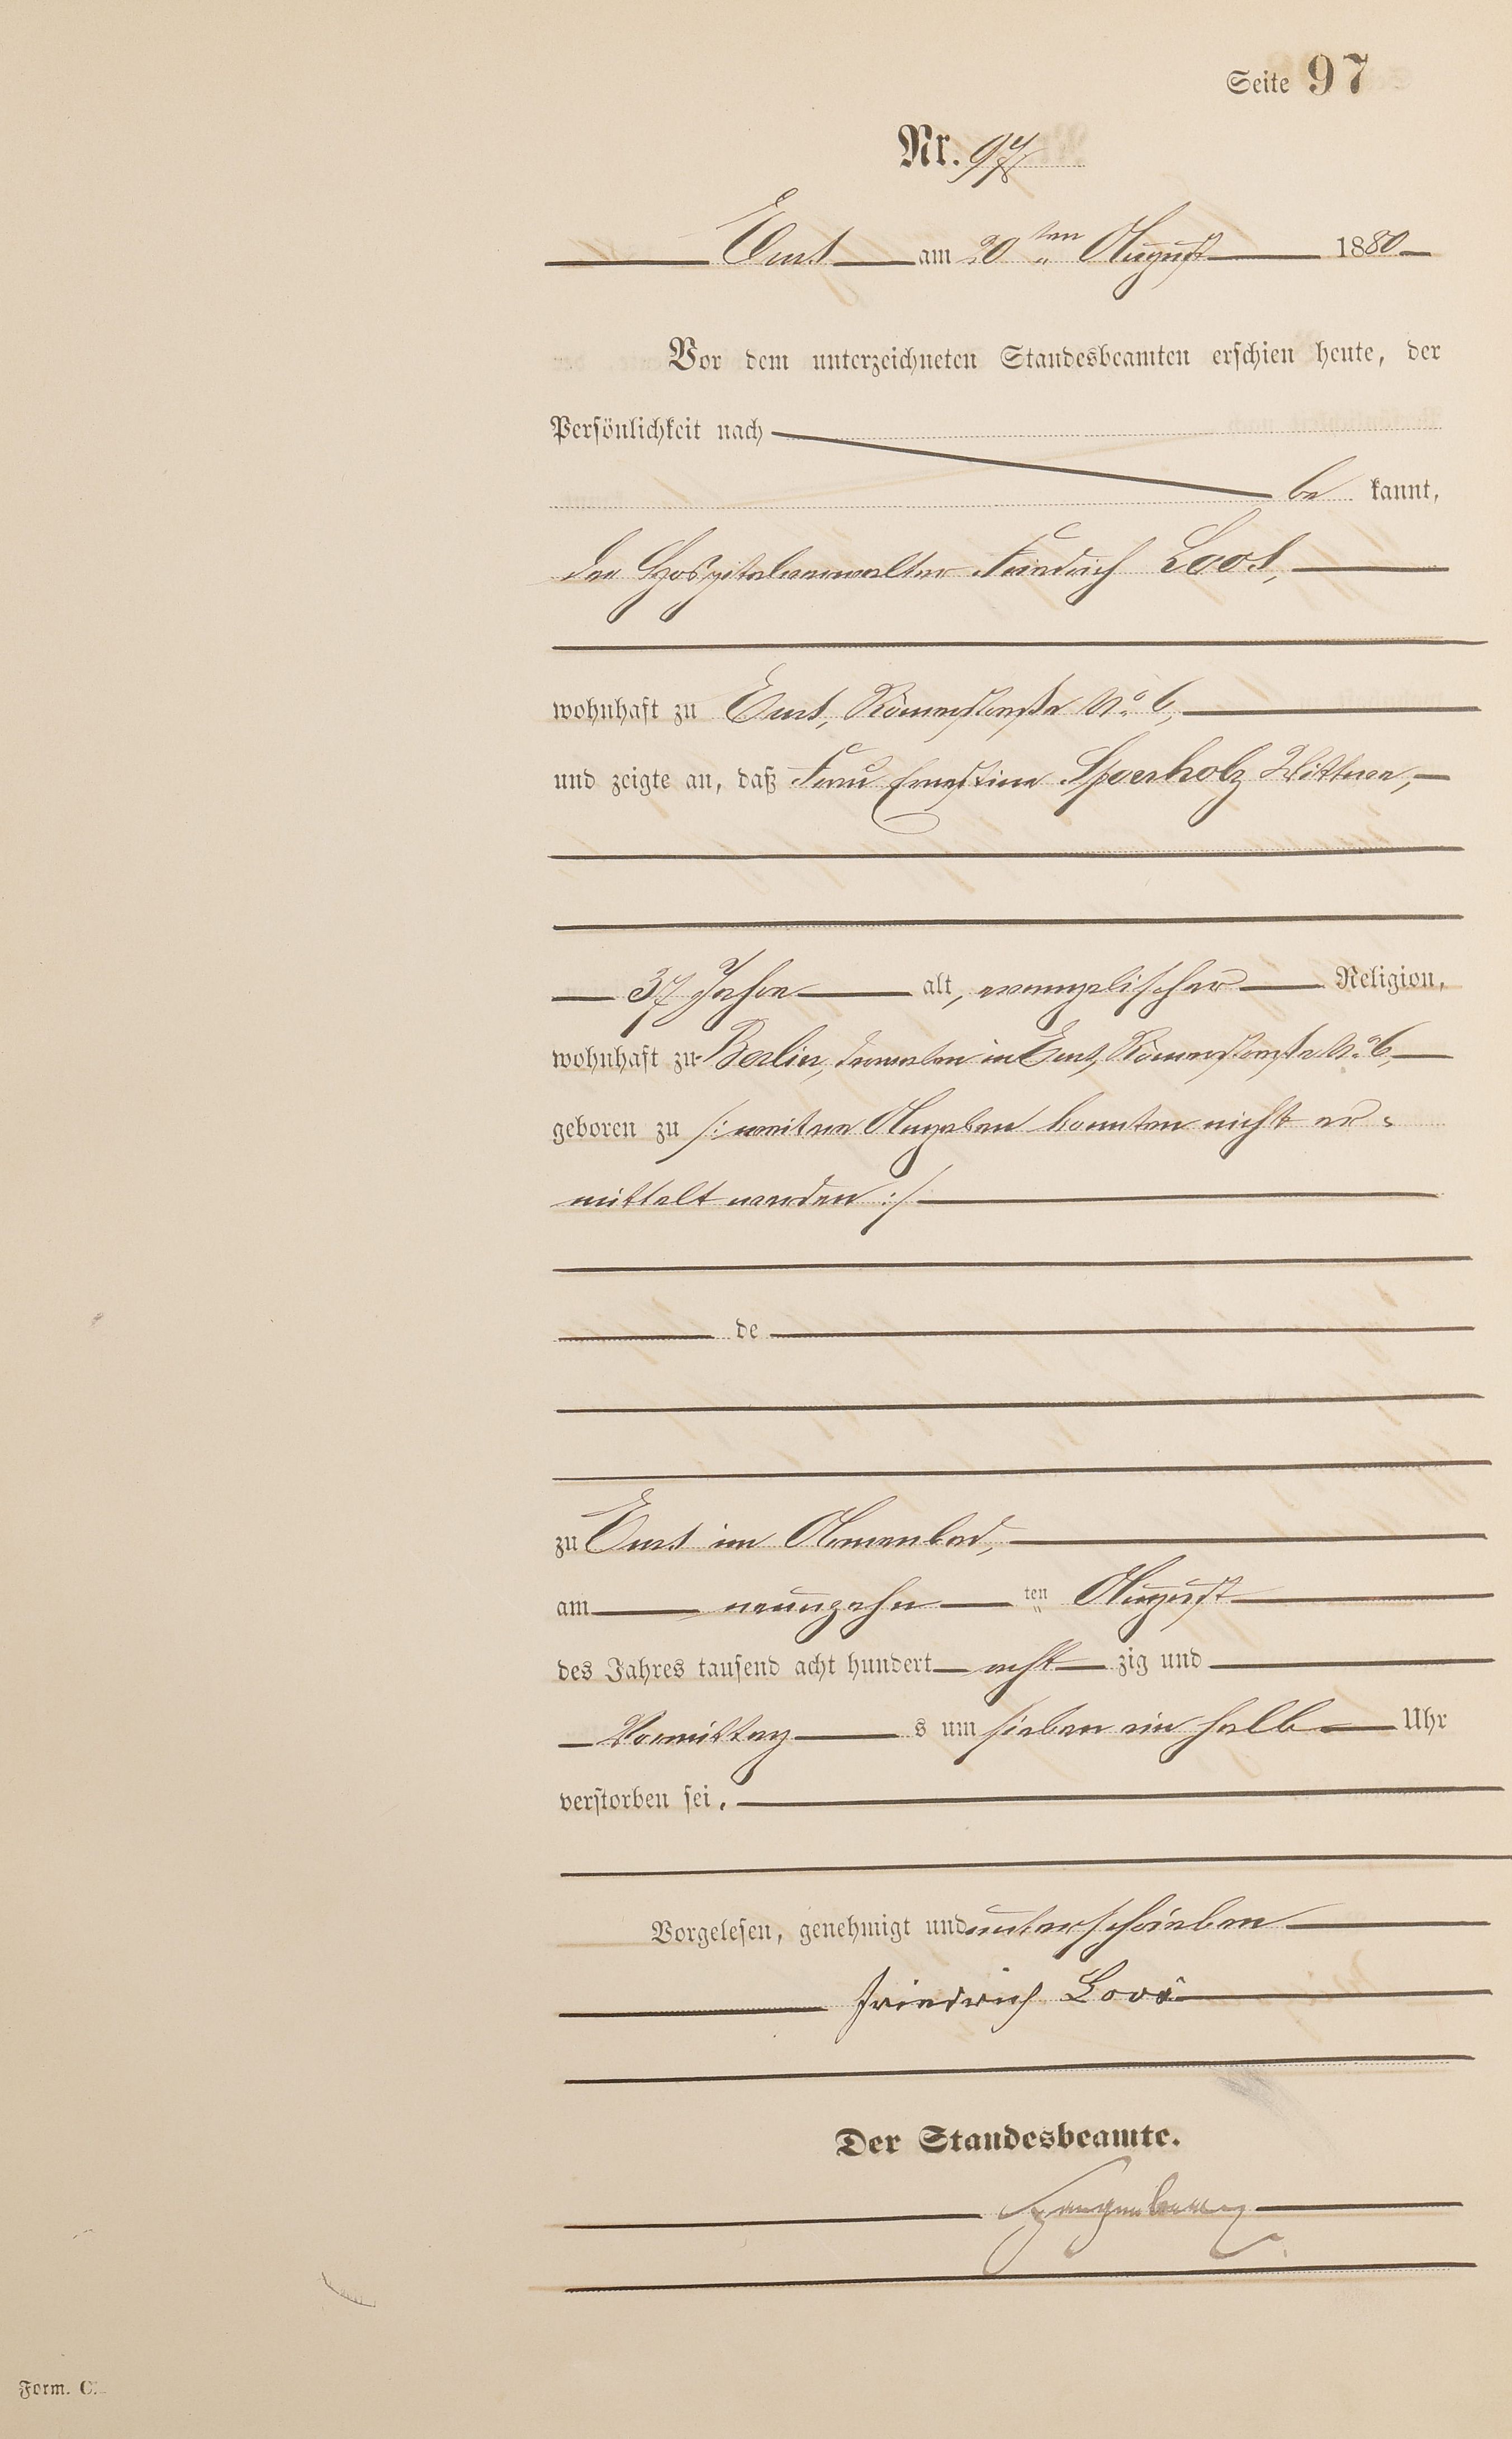 Seite 97
Nr. 97
Ems am 20 ten August 1880
Vor dem unterzeichneten Standesbeamten erschien heute, der
Persönlichkeit nach
be kannt,
der Hospitalverwalter Friedrich Loos,
wohnhaft zu Ems, Römerstraße No. 6,
und zeigte an, daß Frau Ernestine Sperholz Wittwe,
37 Jahre alt, evangelischer Religion,
wohnhaft zu Berlin, in Ems, Römerstraße No. 6,
geboren zu /: weitere Angaben konnten nicht er-
mittelt werden :/
de
zu Ems im Armenbad,
am neunzehn ten August
des Jahres tausend acht hundert acht zig und
Vormittag s um sieben ein halb Uhr
verstorben sei.
Vorgelesen, genehmigt und unterschrieben
Friedrich Loos
Der Standesbeamte.
Form. C.